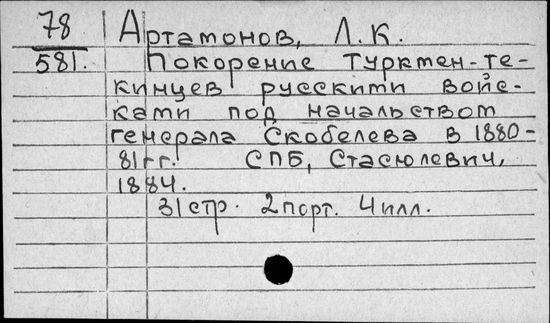 78 Артамонов, Л.К.
581. Покорение туркмен-те-
кинцев русскити войс-
ками под начальством
генерала Скобелева в 1880-
81гг. СПБ, Стасюлевич,
1884.
31стр. 2порт. 4илл.